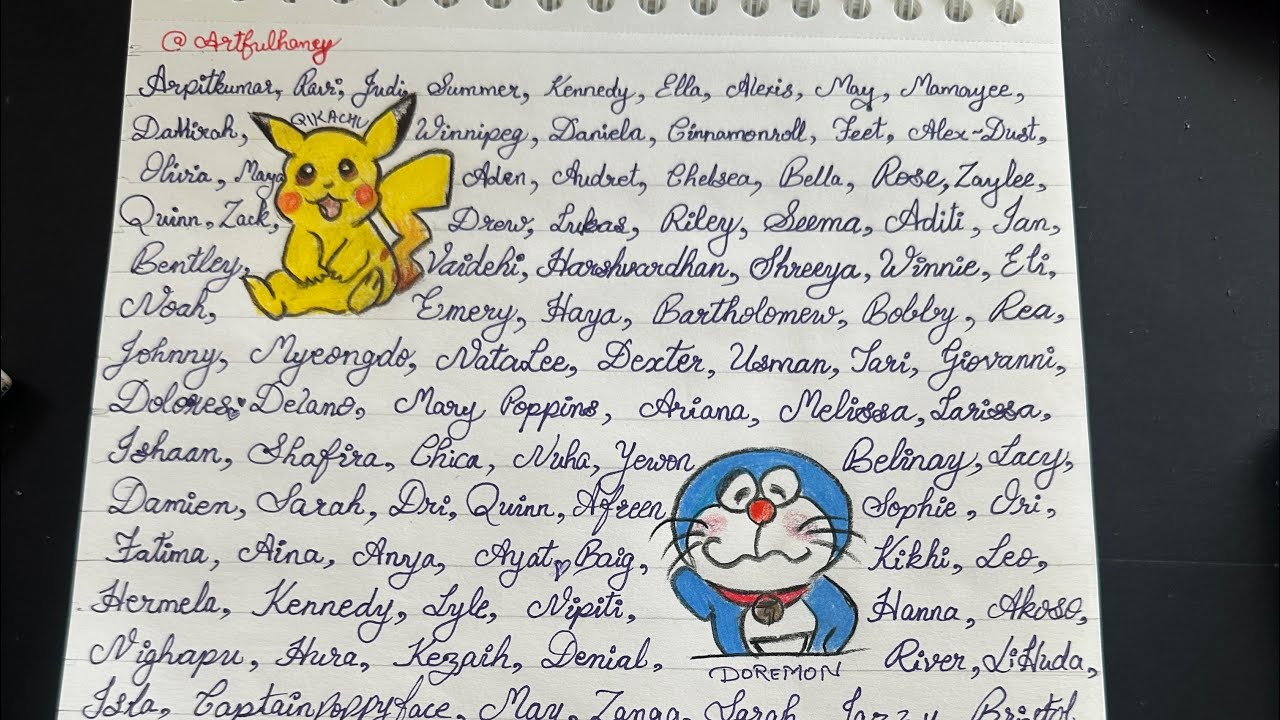 @Artfulhaney
Arpitkumar, Ravi, Judi, Summer, Kennedy, Ella, Alexis, May, Mamayee,
PIKACHU
Dathirah, Winnipeg, Daniela, Cinnamonroll, Feet, Alex-Dust,
Olivia, Maya Aden, Audret, Chelsea, Bella, Rose, Zaylee,
Quinn, Zack, Drew, Lukas, Riley, Seema, Aditi, Ian,
Bentley, Vaidehi, Harshvardhan, Shreeya, Winnie, Eli,
Noah, Emery, Haya, Bartholomew, Bobby, Rea,
Johnny, Myeongdo, NataLee, Dexter, Usman, Tari, Giovanni,
Dolores, Delano, Mary Poppins, Ariana, Melissa, Larissa,
Ishaan, Shafira, Chica, Nuha, Yewon Belinay, Lacy,
Damien, Sarah, Dri, Quinn, Afreen Sophie, Ori,
Fatima, Aina, Anya, Ayat Baig, Kikhi, Leo,
Hermela, Kennedy, Lyle, Nipiti, Hanna, Akoso,
Nighapu, Hura, Kezaih, Denial, River, LiHuda,
DOREMON
Isla, Captainpoppyface, May, Zanga, Sarah, Jazzy, Bristol